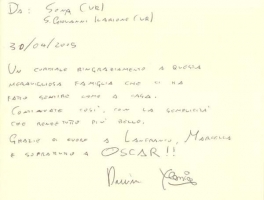 DA: SONA (VR)
S. GIOVANNI ILARIONE (VR)
30/04/2015
UN CORDIALE RINGRAZIAMENTO A QUESTA
MERAVIGLIOSA FAMIGLIA CHE CI HA
FATTO SENTIRE COME A CASA.
CONTINUATE COSÌ, CON LA SEMPLICITÀ
CHE RENDE TUTTO PIÙ BELLO.
GRAZIE DI CUORE A LAUTARIO, MARIELLA
E SOPRATTUTTO A OSCAR!!